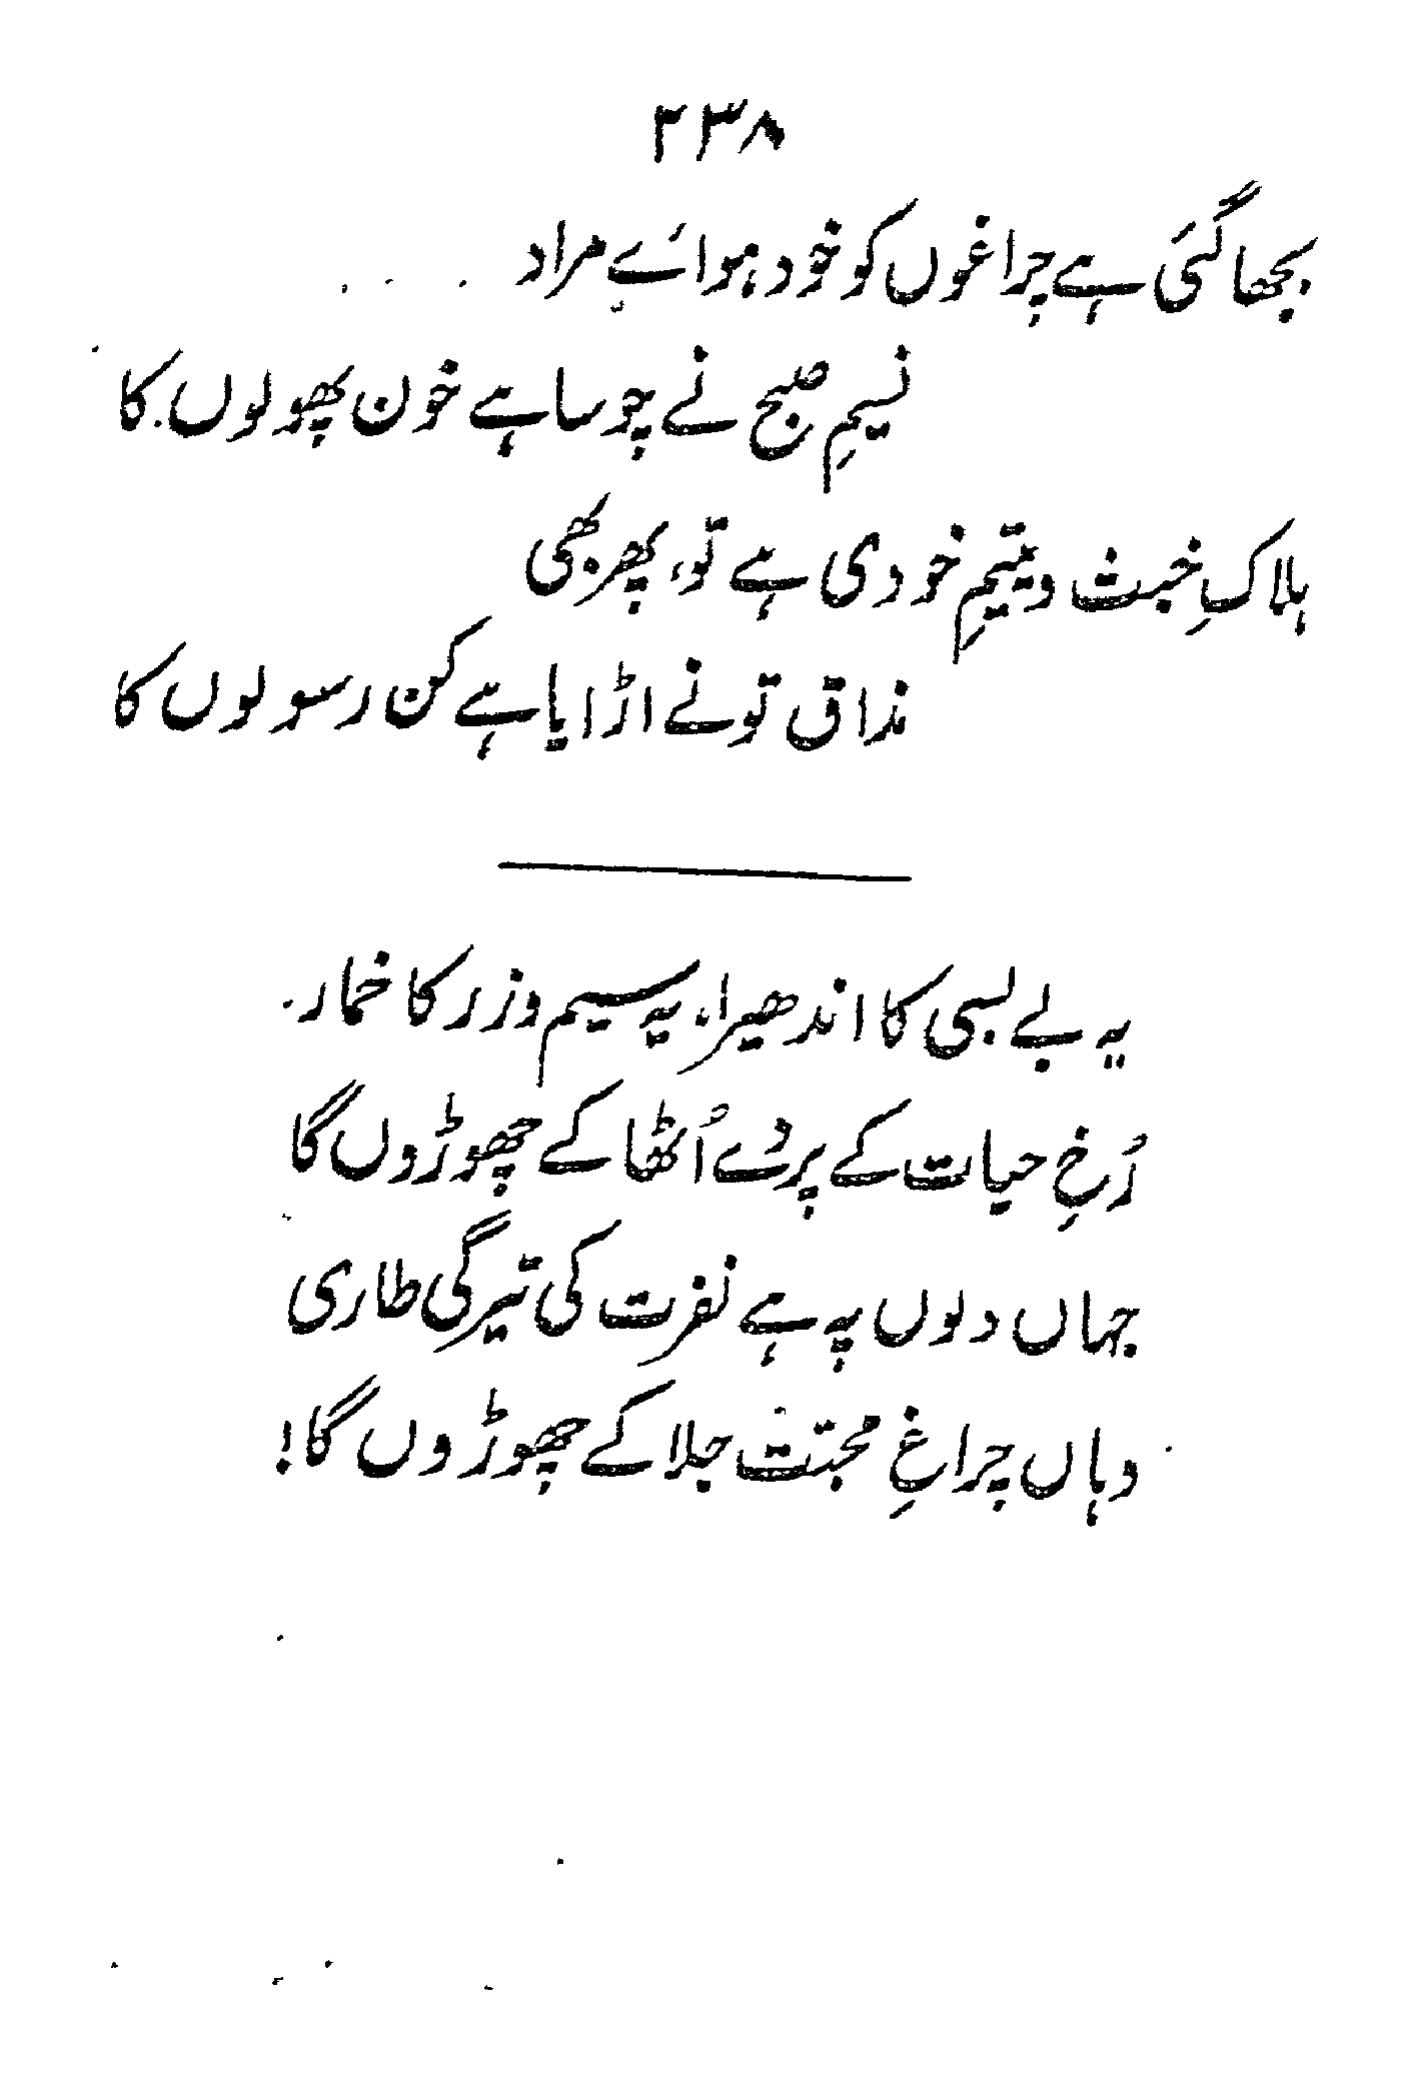 ۲۳۸
بجھا گئی ہے چراغوں کو خود ہوائے مراد
نسیمِ صبح نے چوسا ہے خون پھولوں کا
ہلاکِ خبث و یتیمِ خودی ہے تو، پھر بھی
مذاق تو نے اڑایا ہے کن رسولوں کا
یہ بے بسی کا اندھیرا، یہ سیم و زر کا خمار
رُخِ حیات کے پردے اُٹھا کے چھوڑوں گا
جہاں دلوں پہ ہے نفرت کی تیرگی طاری
وہاں چراغِ محبّت جلا کے چھوڑوں گا!